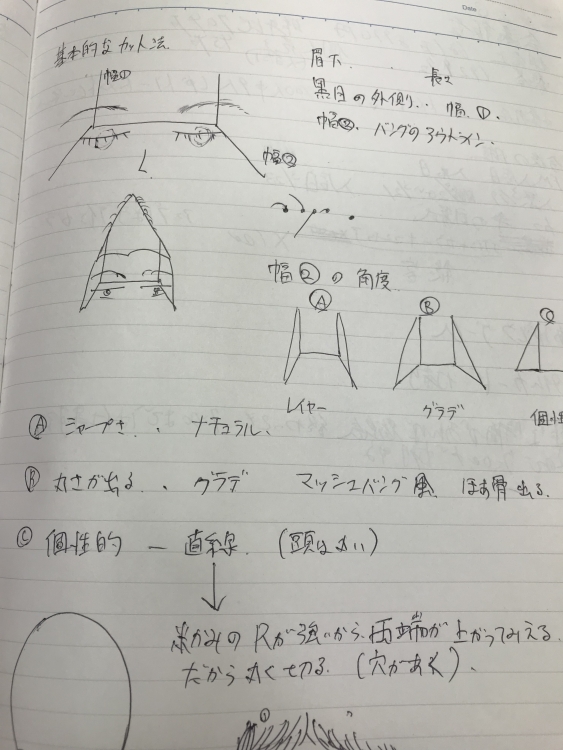 Date
基本的なカット法
幅①
眉下、 長さ
黒目の外側、 幅、①、
幅②、 バングのアウトライン、
幅②
幅②の角度
Ⓐ Ⓑ ©
レイヤー グラデ 個性
Ⓐ シャープさ、、 ナチュラル、
Ⓑ 丸さが出る、、 グラデ マッシュバング風 ほお骨出る、
© 個性的 ー 直線、 (頭は丸い)
のRが強いから、両端が上がってみえる
だから丸く切る、 (穴があく)、
①